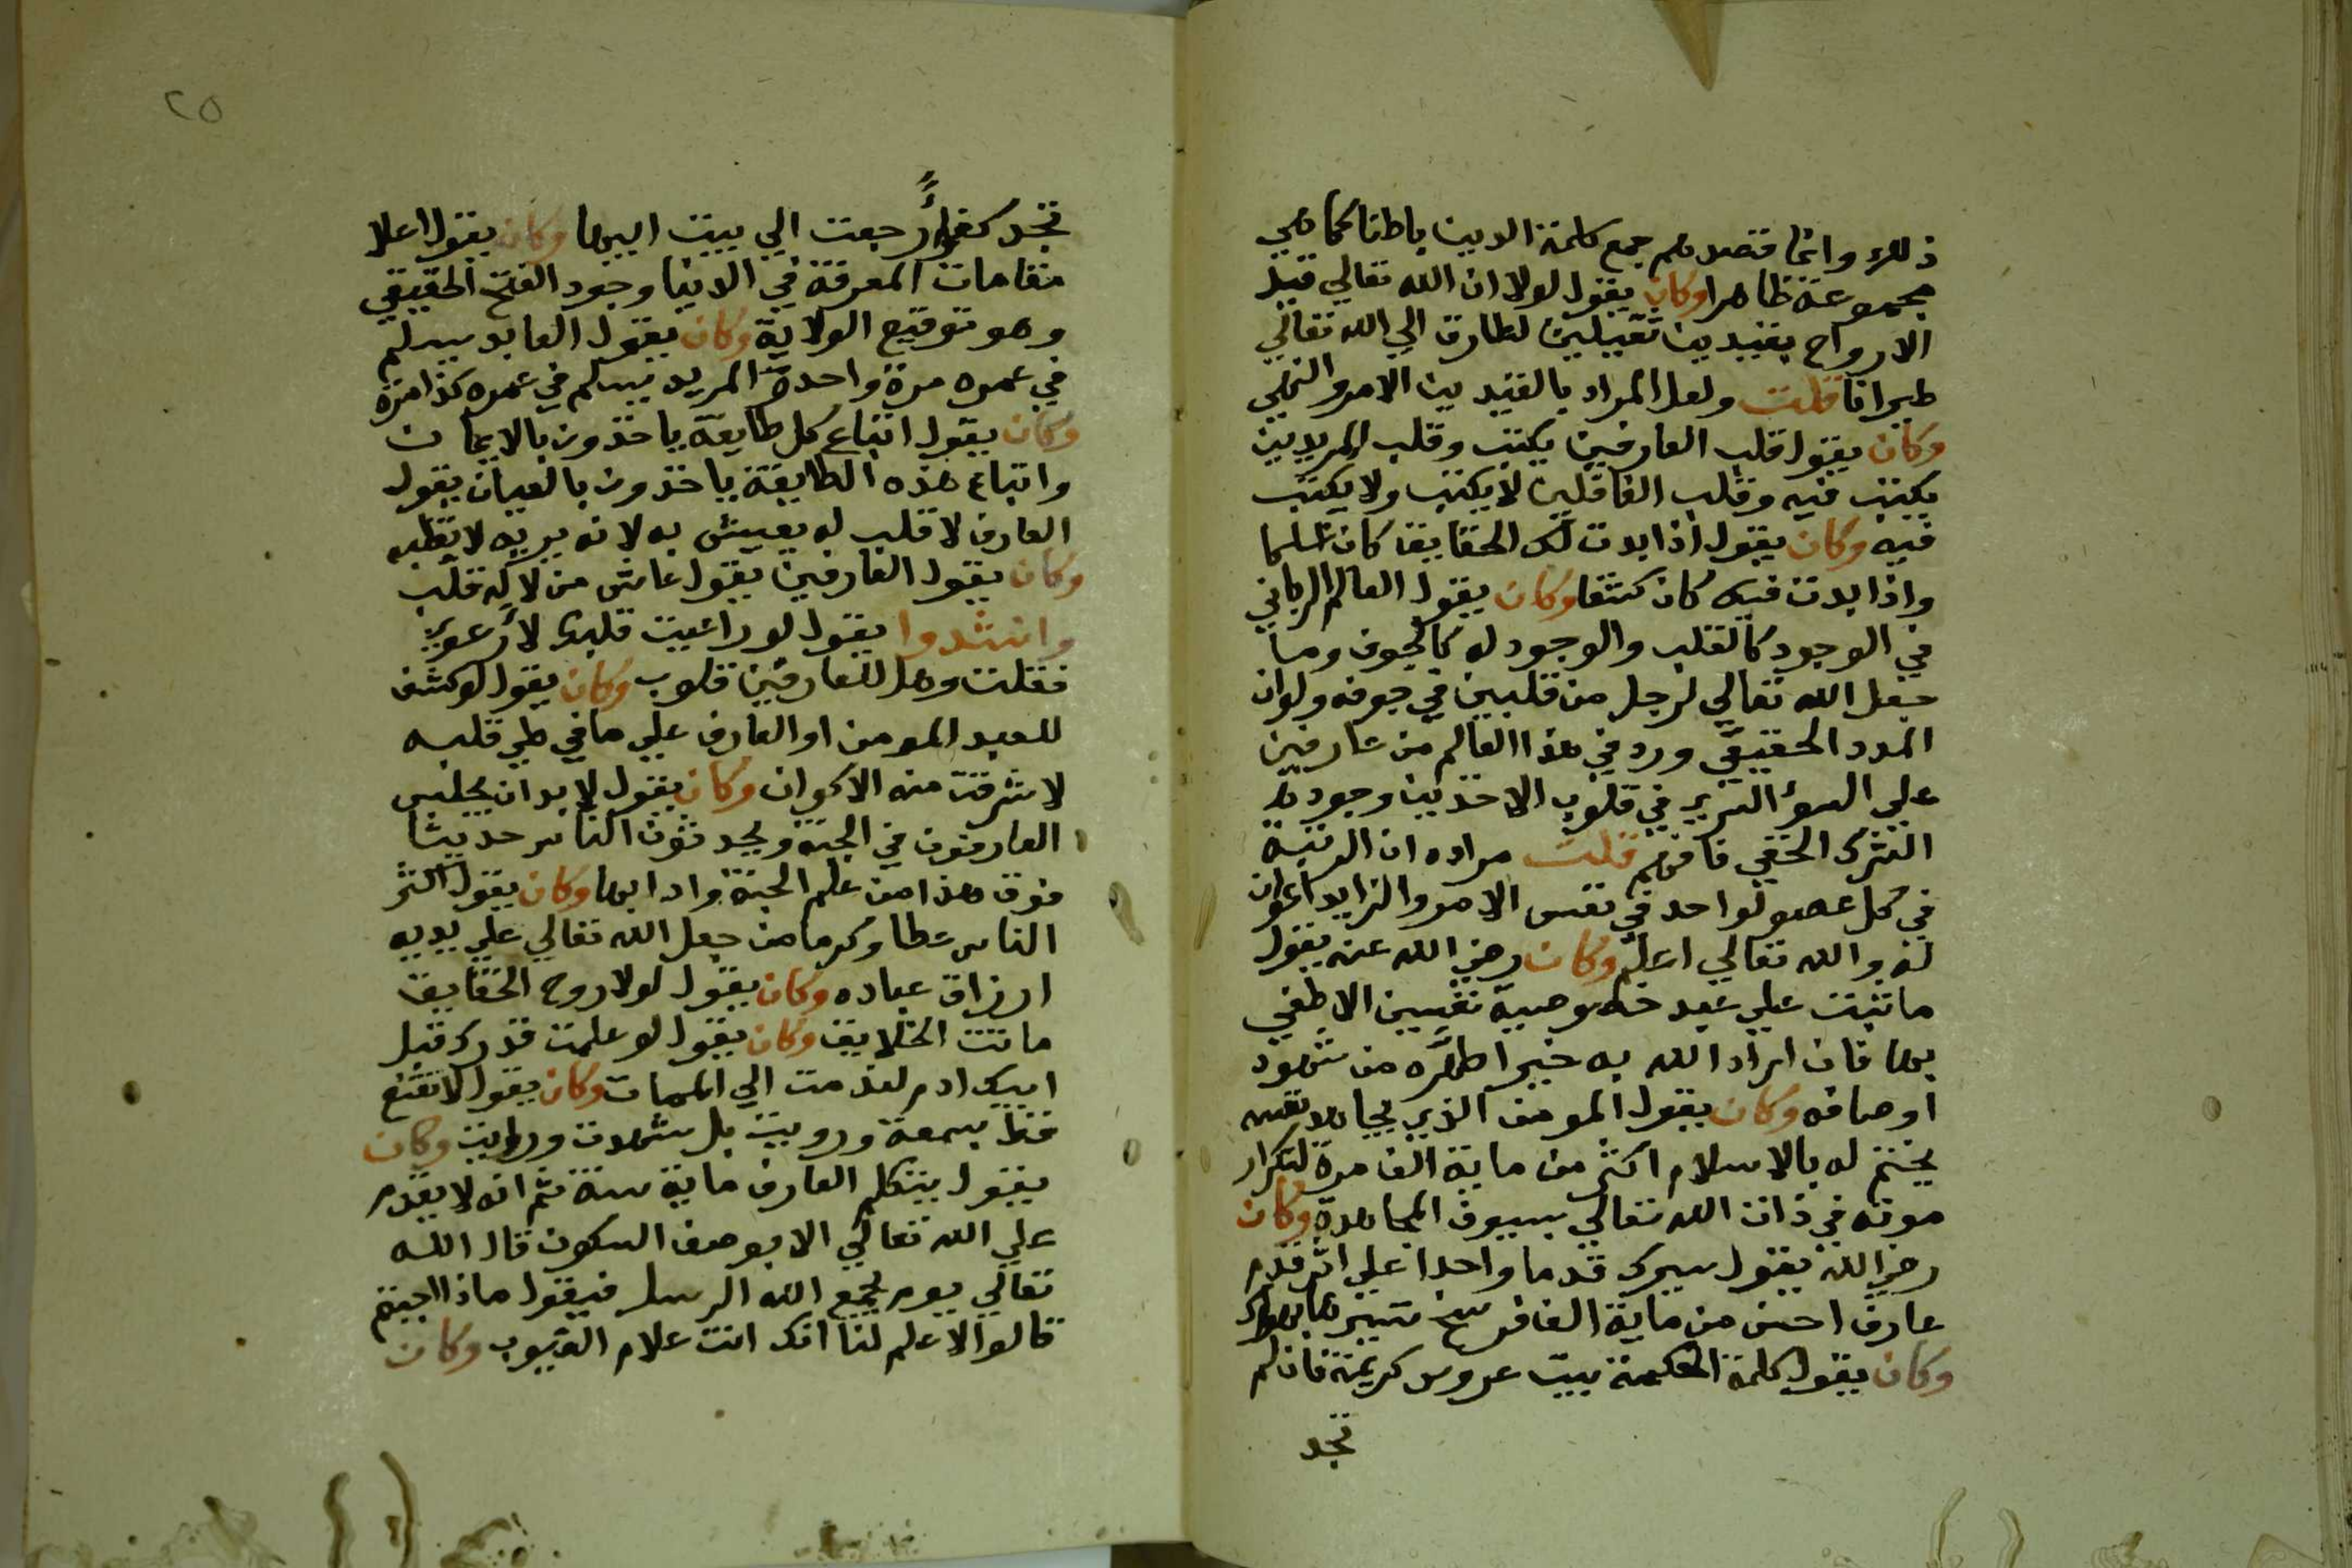 ذلك وانما قصدهم جمع كلمة الدين باطنا كما هي
مجموعة ظاهرا وكان يقول لولا ان الله تعالي قيد
الارواح بقيدين ثقيلين لطارت الي الله تعالي
طيرانا قلت ولعل المراد بالقيدين الامر والنهي
وكان يقول قلب العارفين يكتب وقلب المريدين
يكتب فيه وقلب الغافلين لا يكتب ولا يكتب
فيه وكان يقول اذا بدت لك الحقايق كان علما
واذا بدت فيك كان كشفا وكان يقول العالم الرباني
في الوجود كالقلب والوجود له كالجوف وما
جعل الله تعالي لرجل من قلبين في جوفه ولو ان
المدد الحقيقي ورد في هذا العالم من عارفين
علي السوا لسري في قلوب الاخذين وجود
الشرك الخفي فافهم قلت مراده ان الرتبة
في كل عصر لواحد في نفس الامر والزايد اعوان
له والله تعالي اعلم وكان رضي الله عنه يقول
ما ثبت علي عبد خصوصية تعيين الا طغي
بها فان اراد الله به خيرا طهره من شهود
اوصافه وكان يقول المومن الذي يجاهد نفسه
يختم له بالاسلام اكثر من ماية الف مرة لتكرار
موته في ذات الله تعالي بسيوف المجاهدة وكان
رضي الله يقول سيرك قدما واحدا علي اثر قدم
عارف احسن من ماية الف فرسخ تسيرها بهواك
وكان يقول كلمة الحكمة بيت عروس كريمة فان لم
تجد
٢٥
تجد كفوا رجعت الي بيت ابيها وكان يقول اعلا
مقامات المعرفة في الدنيا وجود الفتح الحقيقي
وهو توقيع الولاية وكان يقول العابد يسلم
في عمره مرة واحدة المريد يسلم في عمره كذا مرة
وكان يقول اتباع كل طايفة ياخذون بالايمان
واتباع هذه الطايفة ياخذون بالعيان يقول
العارف لا قلب له يعيش به لانه بربه لا بقلبه
وكان يقول العارفين يقول عاش من لا له قلب
وانشدوا يقول لو راعيت قلبك لا رعوي
فقلت وهل للعارفين قلوب وكان يقول لو كشف
للعبد المومن او العارف علي ما في طي قلبه
لاشرقت منه الاكوان وكان يقول لا بد ان يجلس
العارفون في الجنة ويحدثون الناس حديثا
فوق هذا من علم الجنة وادابها وكان يقول اكثر
الناس عطا وكرما من جعل الله تعالي علي يديه
ارزاق عباده وكان يقول لولا روح الحقايق
ماتت الخلايق وكان يقول لو علمت قدرك قبل
ابيك ادم لقدمت الي الممات وكان يقول لا تقنع
قط بسمعت ورويت بل شهدت ورايت وكان
يقول يتكلم العارف ماية سنة ثم انه لا يقدم
علي الله تعالي الا بوصف السكون قال الله
تعالي يوم يجمع الله الرسل فيقول ماذا اجبتم
قالوا لا علم لنا انك انت علام الغيوب وكان